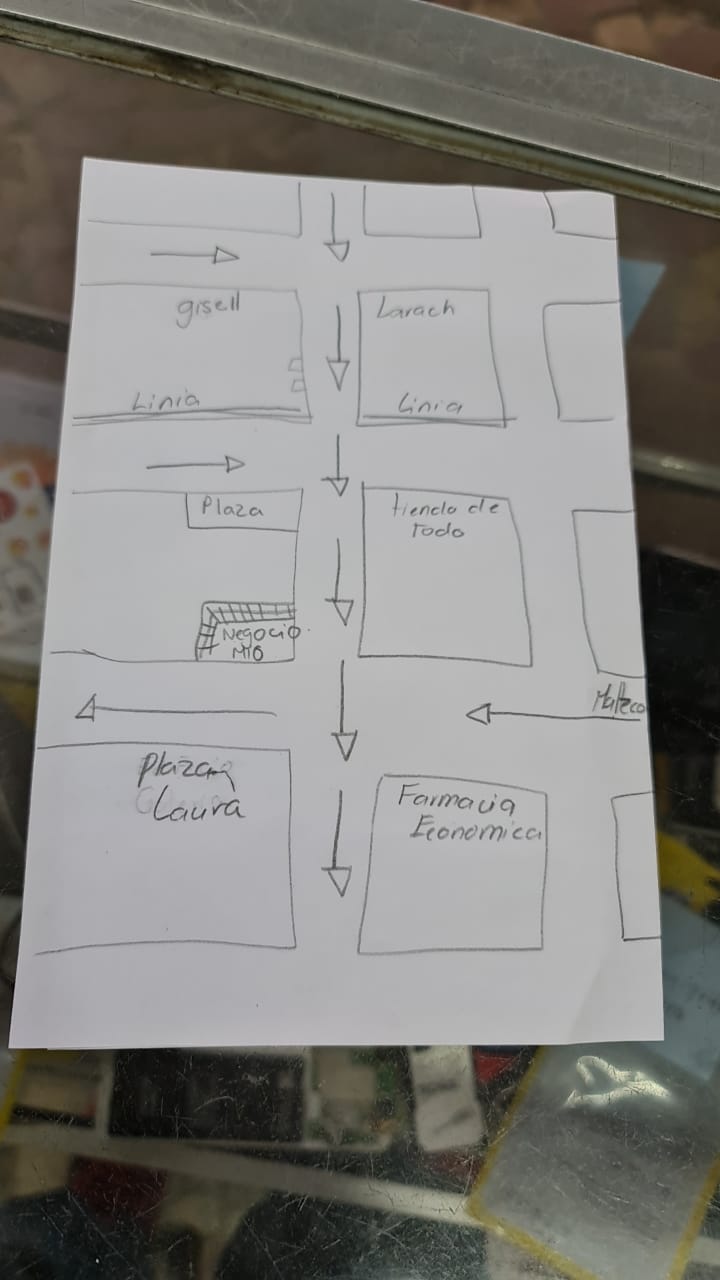 gisell
Larach
Linia
Linia
Plaza
tienda de
Todo
Negocio
MIO
Plaza
Laura
Farmacia
Economica